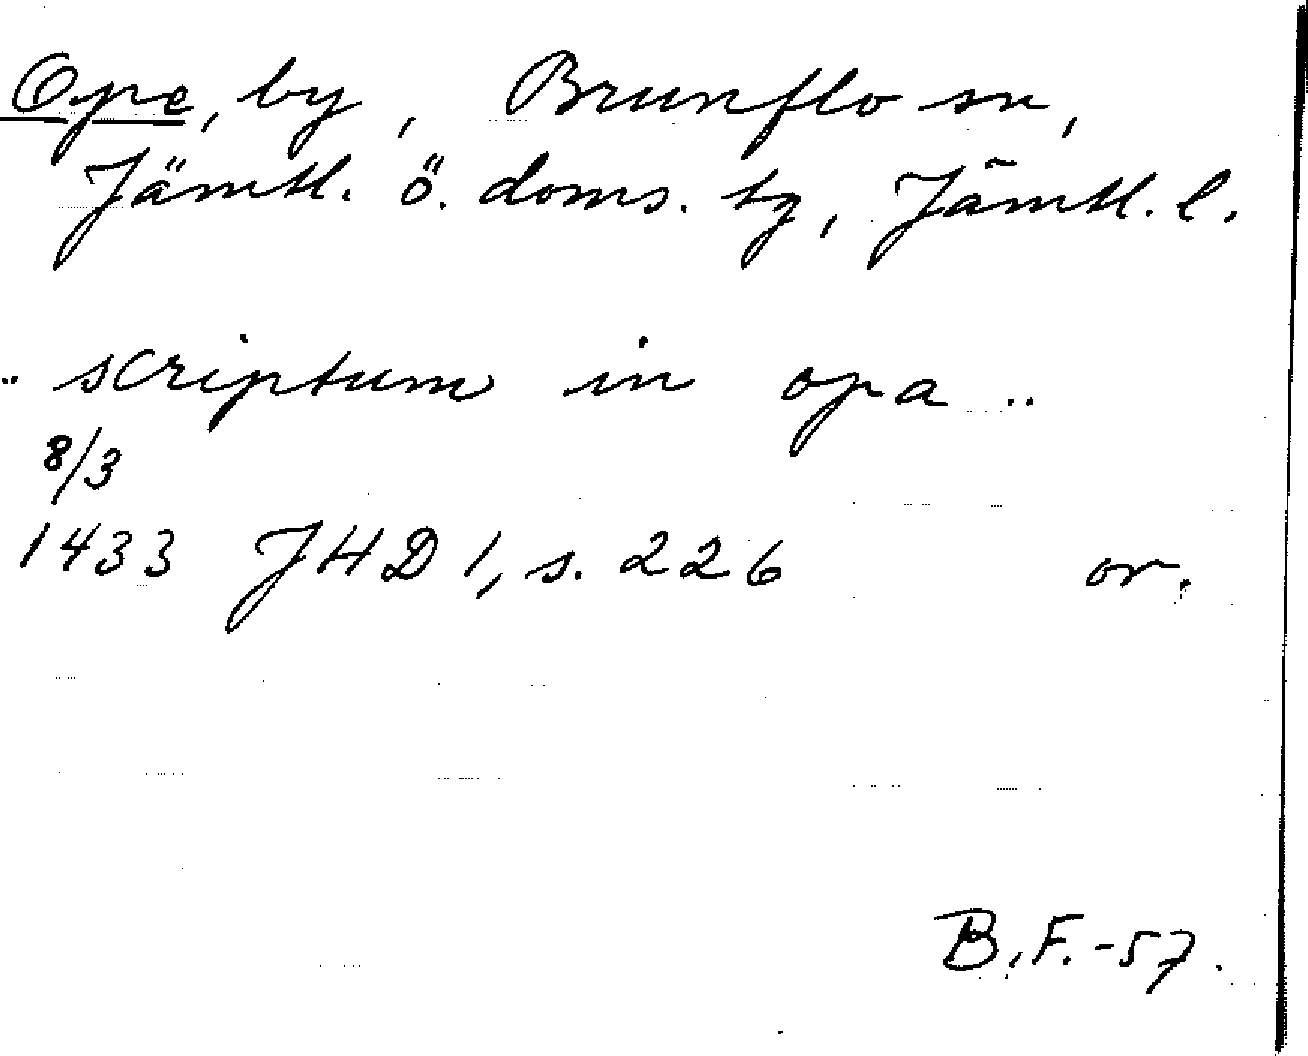 Ope, by, Brunflo sn,
Jämtl. ö. doms. tg, Jämtl. l.
.. scriptum in opa ..
8/3
1433 JHD 1, s. 226 or.
B.F.-57.